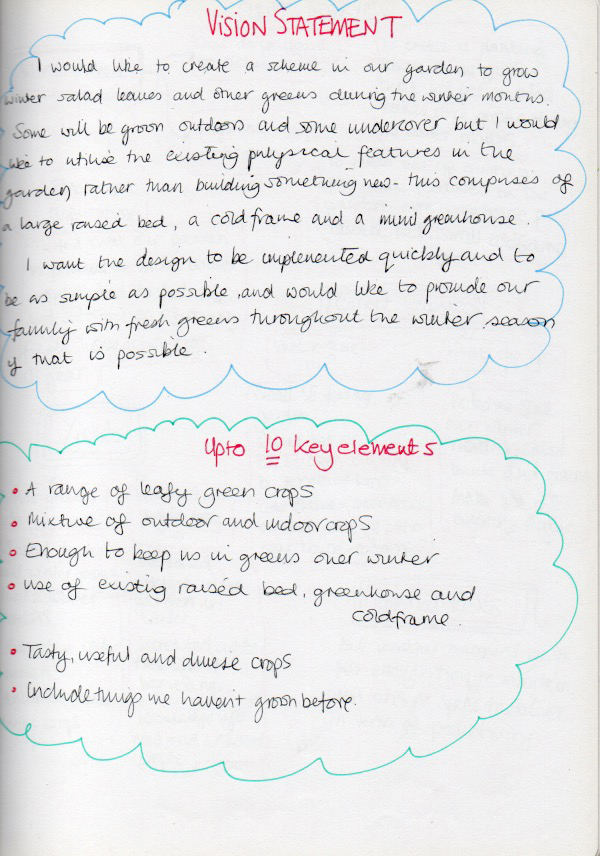 VISION STATEMENT
I would like to create a scheme in our garden to grow
winter salad leaves and other greens during the winter months.
Some will be grown outdoors and some undercover but I would
like to utilise the existing physical features in the
garden, rather than building something new - this comprises of
a large raised bed, a coldframe and a mini greenhouse.
I want the design to be implemented quickly and to
be as simple as possible, and would like to provide our
family with fresh greens throughout the winter season
if that is possible.
Upto 10 key elements
• A range of leafy green crops
• Mixture of outdoor and indoor crops
• Enough to keep us in greens over winter
• Use of existing raised bed, greenhouse and
coldframe.
• Tasty, useful and diverse crops
• Include things we haven't grown before.